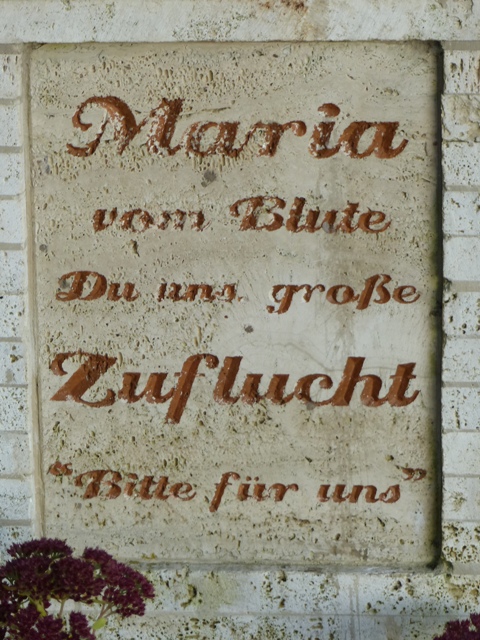 Maria
vom Blute
Du uns. große
Zuflucht
"Bitte für uns"